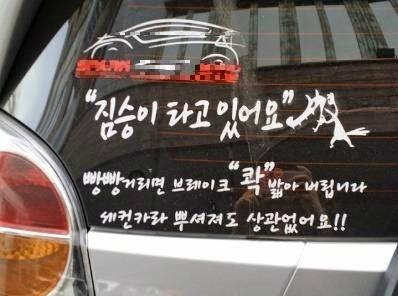 "짐승이 타고 있어요"
빵빵거리면 브레이크 "콱" 밟아 버립니다
세컨카라 뿌셔져도 상관없어요!!